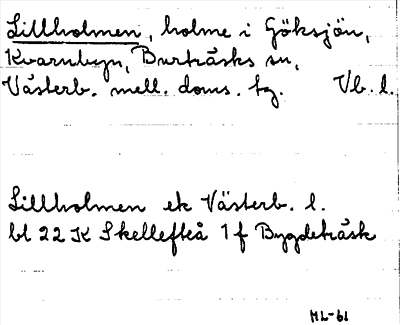 Lillholmen, holme i Göksjön,
Kvarnbyn, Burträsks sn,
Västerb. mell. doms. tg. Vb. l.
Lillholmen ek Västerb. l.
bl 22 K Skellefteå 1 f Bygdeträsk
ML-61